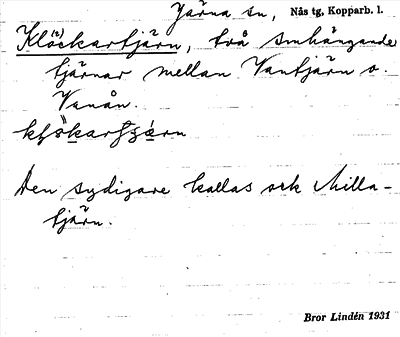 Järna sn, Nås tg, Kopparb. l.
Klö(c)kartjärn, två smhängande
tjärnar mellan Vantjärn o.
Vanån.
Den sydigare kallas ock Milla-
tjärn.
Bror Lindén 1931